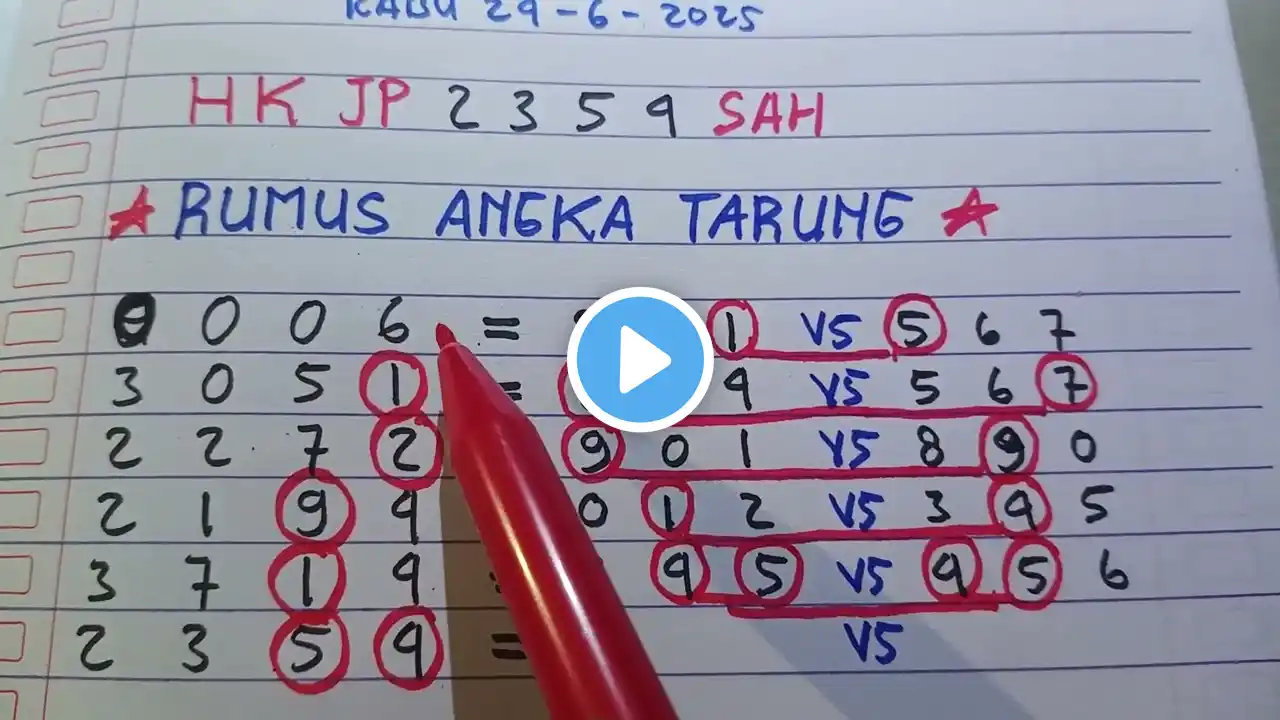 RABU 24-6-2025
HK JP 2 3 5 4 SAH
RUMUS ANGKA TARUNG
0 0 0 6 = 1 VS 5 6 7
3 0 5 1 = 4 VS 5 6 7
2 2 7 2 9 0 1 VS 8 9 0
2 1 9 4 0 1 2 VS 3 4 5
3 7 1 4 4 5 VS 4 5 6
2 3 5 4 = VS